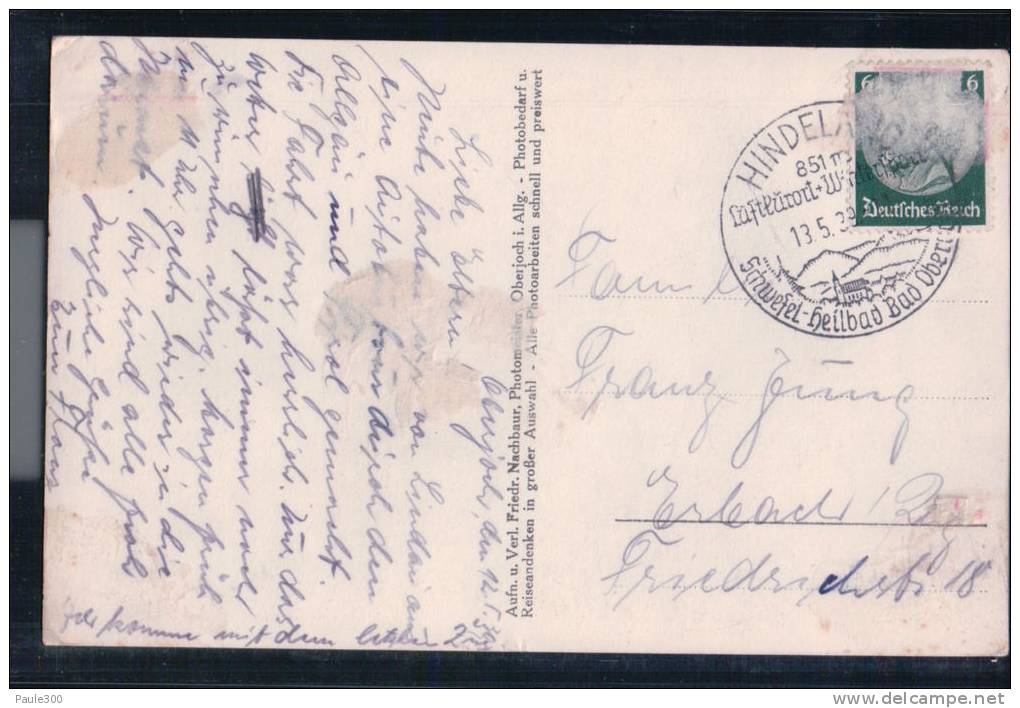 Oberjoch, den 12.5.39
Liebe Eltern!
Heute haben wir von Lindau aus
eine Autotour durch den
Allgäu und Tirol gemacht.
Die Fahrt war herrlich. Nur das
Wetter läßt immer noch
zu wünschen übrig. Morgen früh
um 11 Uhr geht's wieder in die
Heimat. Wir sind alle froh
darum. Innigliche Grüße
Euer Hans
Ich komme mit dem letzten Zug
Aufn. u. Verl. Friedr. Nachbaur, Photomeister, Oberjoch i. Allg. - Photobedarf u.
Reiseandenken in großer Auswahl - Alle Photoarbeiten schnell und preiswert
HINDELANG
851 m
Luftkurort + Wintersport
13.5.39
Schwefel-Heilbad Bad Oberdorf
6 6
Deutsches Reich
Familie
Franz Jung
Erbach
Friedrichstr. 18
Paule300
www.delcampe.net